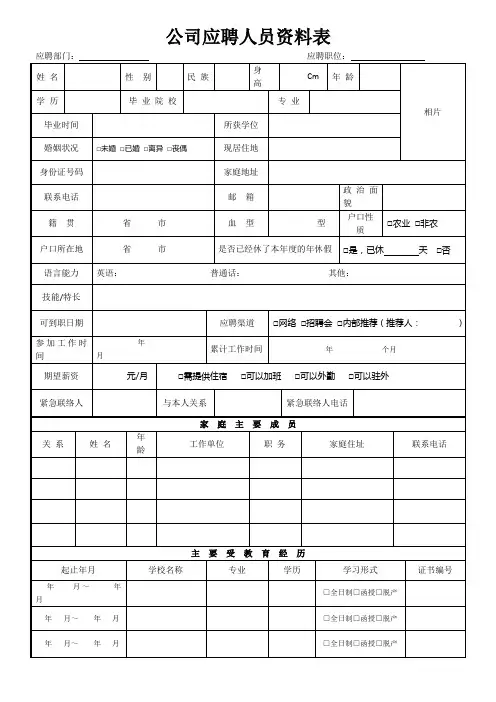 公司应聘人员资料表
应聘部门： 应聘职位：
姓 名 性 别 民 族 身高 Cm 年 龄 相片
学 历 毕 业 院 校 专 业
毕业时间 所获学位
婚姻状况 □未婚 □已婚 □离异 □丧偶 现居住地
身份证号码 家庭地址
联系电话 邮 箱 政 治 面貌
籍 贯 省 市 血 型 型 户口性质 □农业 □非农
户口所在地 省 市 是否已经休了本年度的年休假 □是，已休 天 □否
语言能力 英语： 普通话： 其他：
技能/特长
可到职日期 应聘渠道 □网络 □招聘会 □内部推荐（推荐人： ）
参 加 工 作 时间 年 月 累计工作时间 年 个月
期望薪资 元/月 □需提供住宿 □可以加班 □可以外勤 □可以驻外
紧急联络人 与本人关系 紧急联络人电话
家 庭 主 要 成 员
关 系 姓 名 年龄 工作单位 职 务 家庭住址 联系电话
主 要 受 教 育 经 历
起止年月 学校名称 专业 学历 学习形式 证书编号
年 月～ 年 月 □全日制□函授□脱产
年 月～ 年 月 □全日制□函授□脱产
年 月～ 年 月 □全日制□函授□脱产